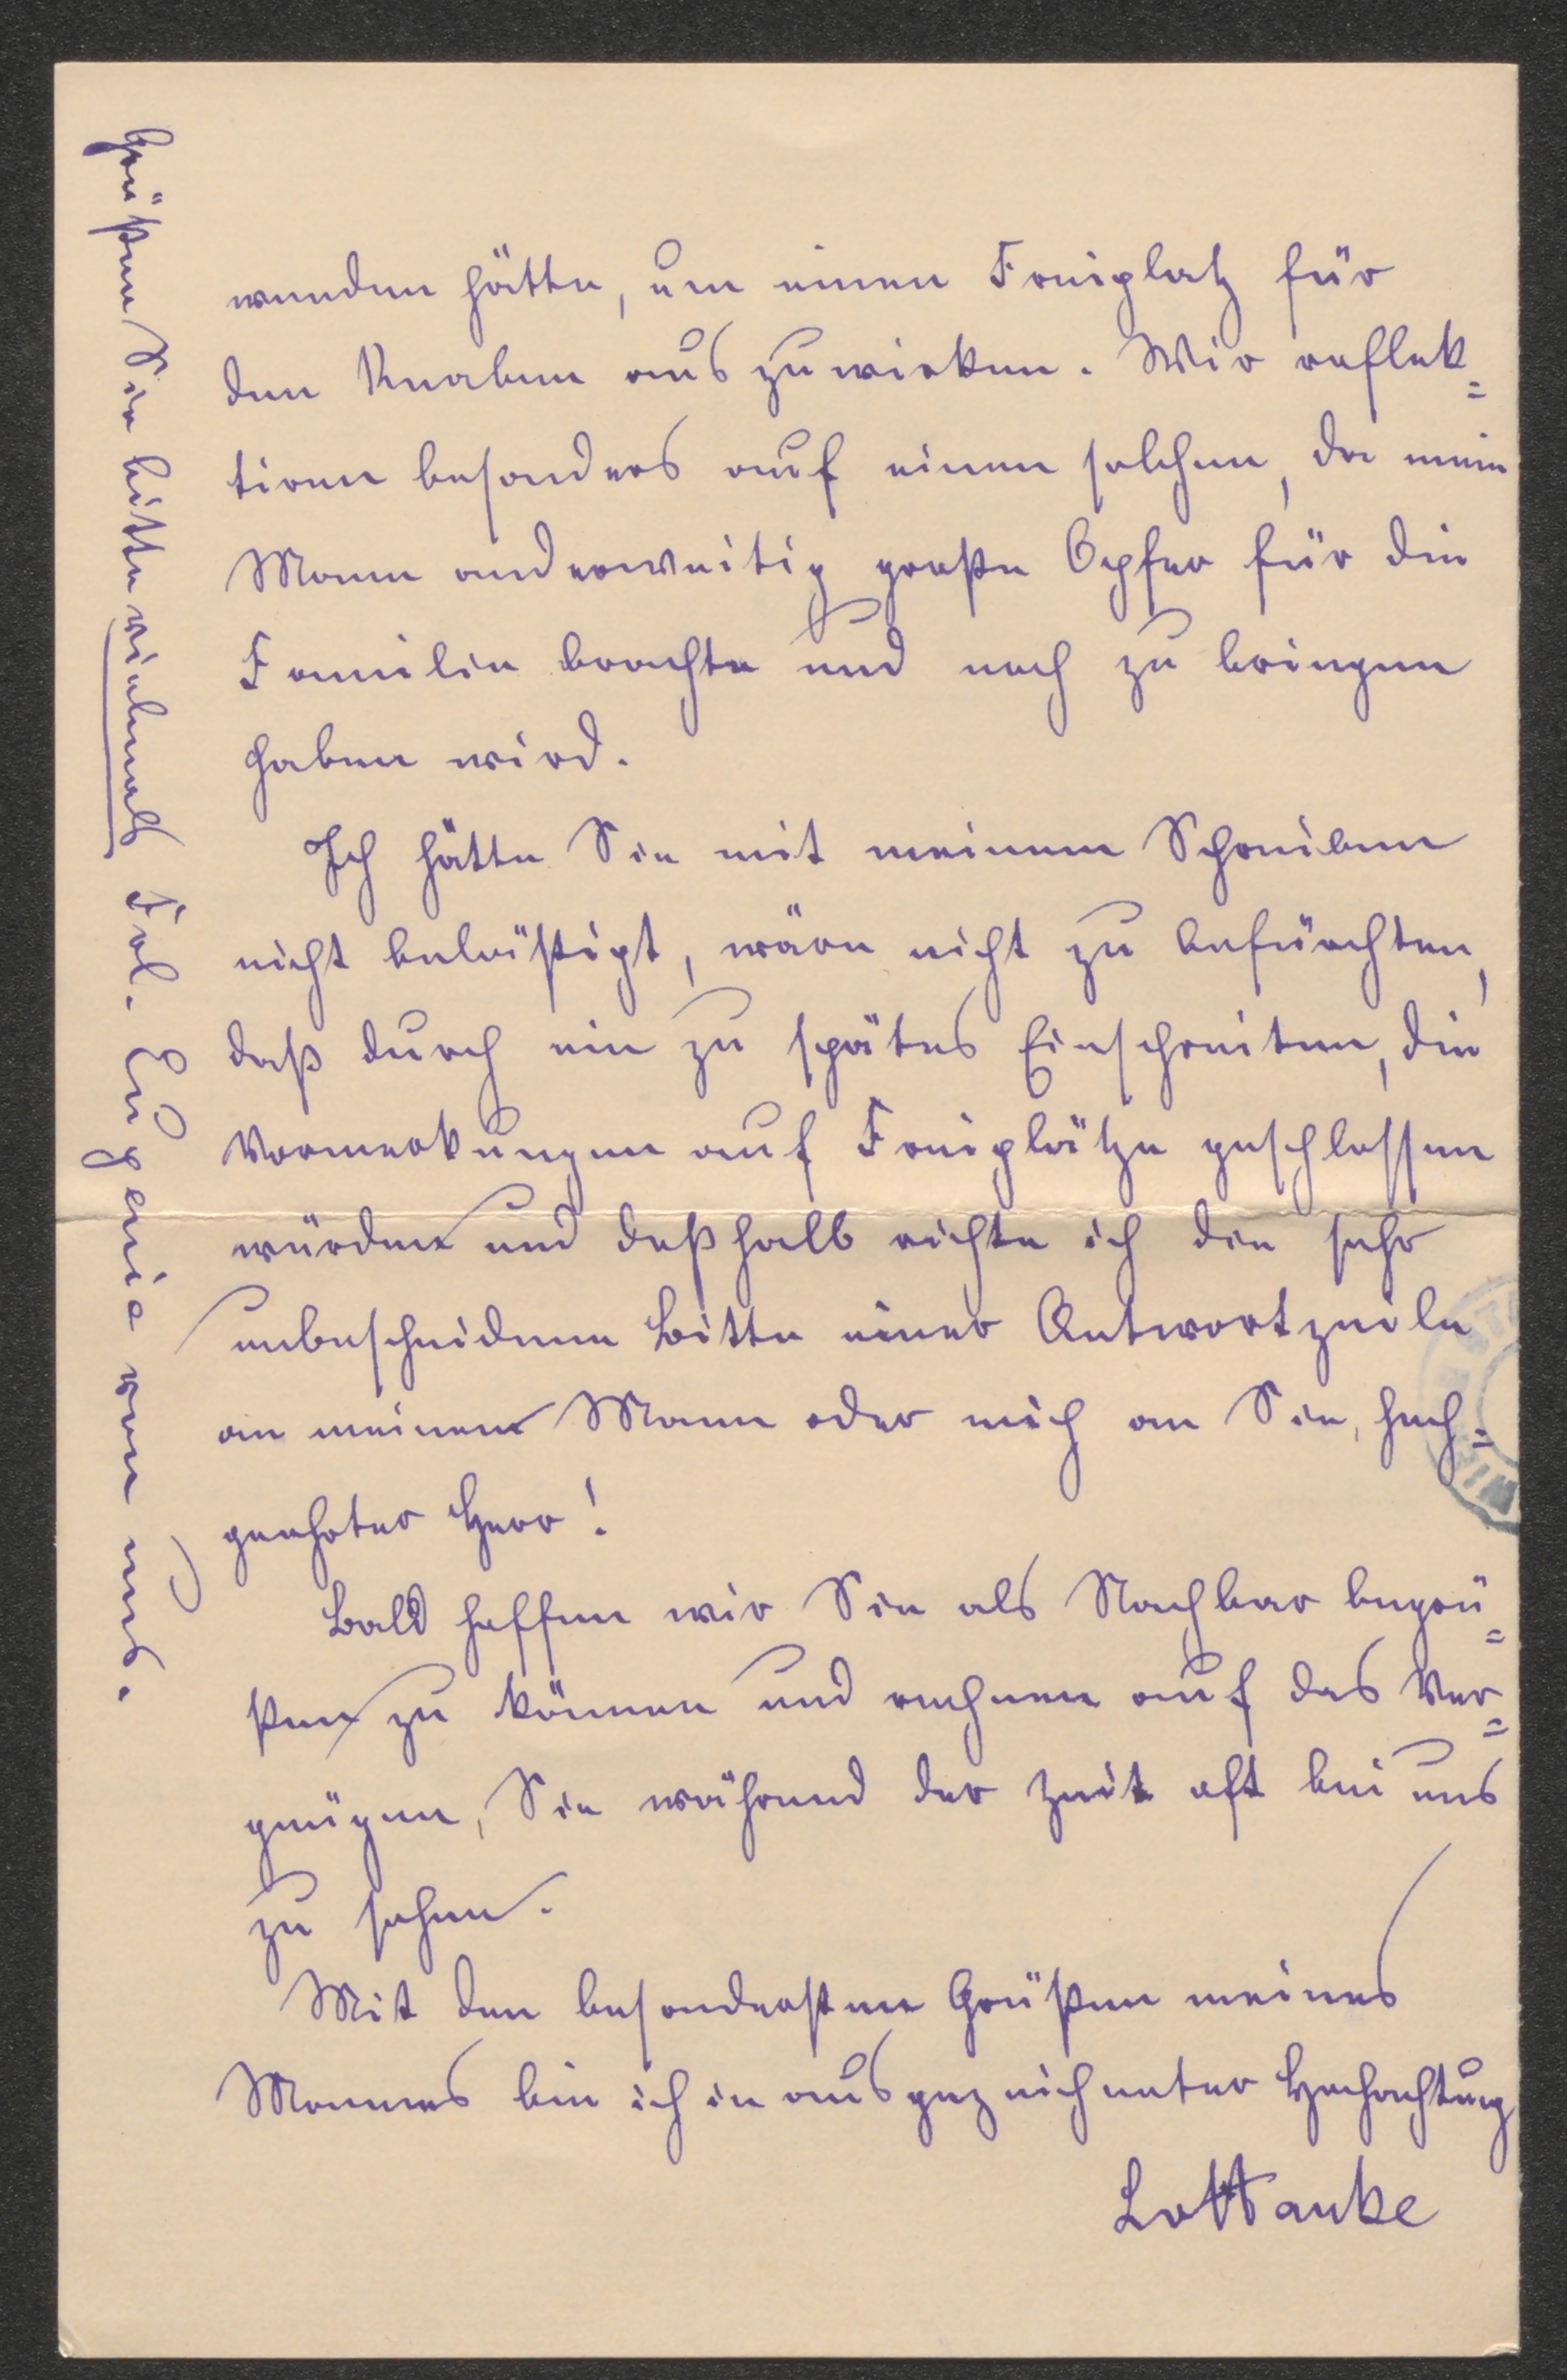 wenden hätte, um einen Freiplatz für
den Knaben auszuwirken. Wir reflek=
tiren besonders auf einen solchen, da mein
Mann anderweitig große Opfer für die
Familie brachte und noch zu bringen
haben wird.
Ich hätte Sie mit meinem Schreiben
nicht belästigt, wäre nicht zu befürchten,
daß durch ein zu spätes Einschreiten, die
Vormerkungen auf Freiplätze geschlossen
würden und deßhalb richte ich die sehr
unbescheidene Bitte einer Antwortzeile
an meinen Mann oder mich an Sie, hoch=
geehrter Herr!
Bald hoffen wir Sie als Nachbar begrü=
ßen zu können und rechnen auf das Ver=
gnügen, Sie während der Zeit oft bei uns
zu sehen.
Mit den besondersten Grüßen meines
Mannes bin ich in ausgezeichneter Hochachtung
Grüßen Sie bitte vielmals Frl. Eugenie von uns.